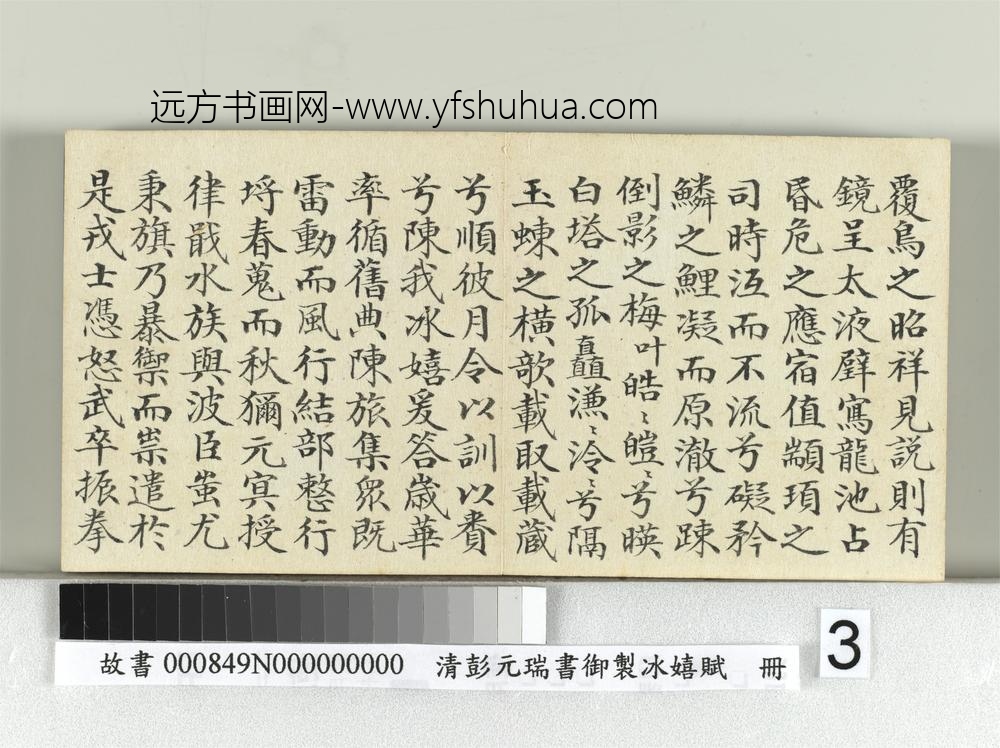 远方书画网-www.yfshuhua.com
覆鳥之昭祥見説則有
鏡呈太液璧寫龍池占
昬危之應宿值顓頊之
司時沍而不流兮礙矜
鱗之鯉凝而原澈兮踈
倒影之梅叶皓〻皚〻兮暎
白塔之孤矗溓〻泠〻兮隔
玉蝀之橫歌載取載藏
兮順彼月令以訓以賚
兮陳我冰嬉爰答歲華
率循舊典陳旅集眾既
雷動而風行結部整行
埒春蒐而秋獮元冥授
律戢水族與波臣蚩尤
秉旗乃暴禦而祟遣於
是戎士憑怒武卒振拳
3
故書 000849N000000000 清彭元瑞書御製冰嬉賦 冊